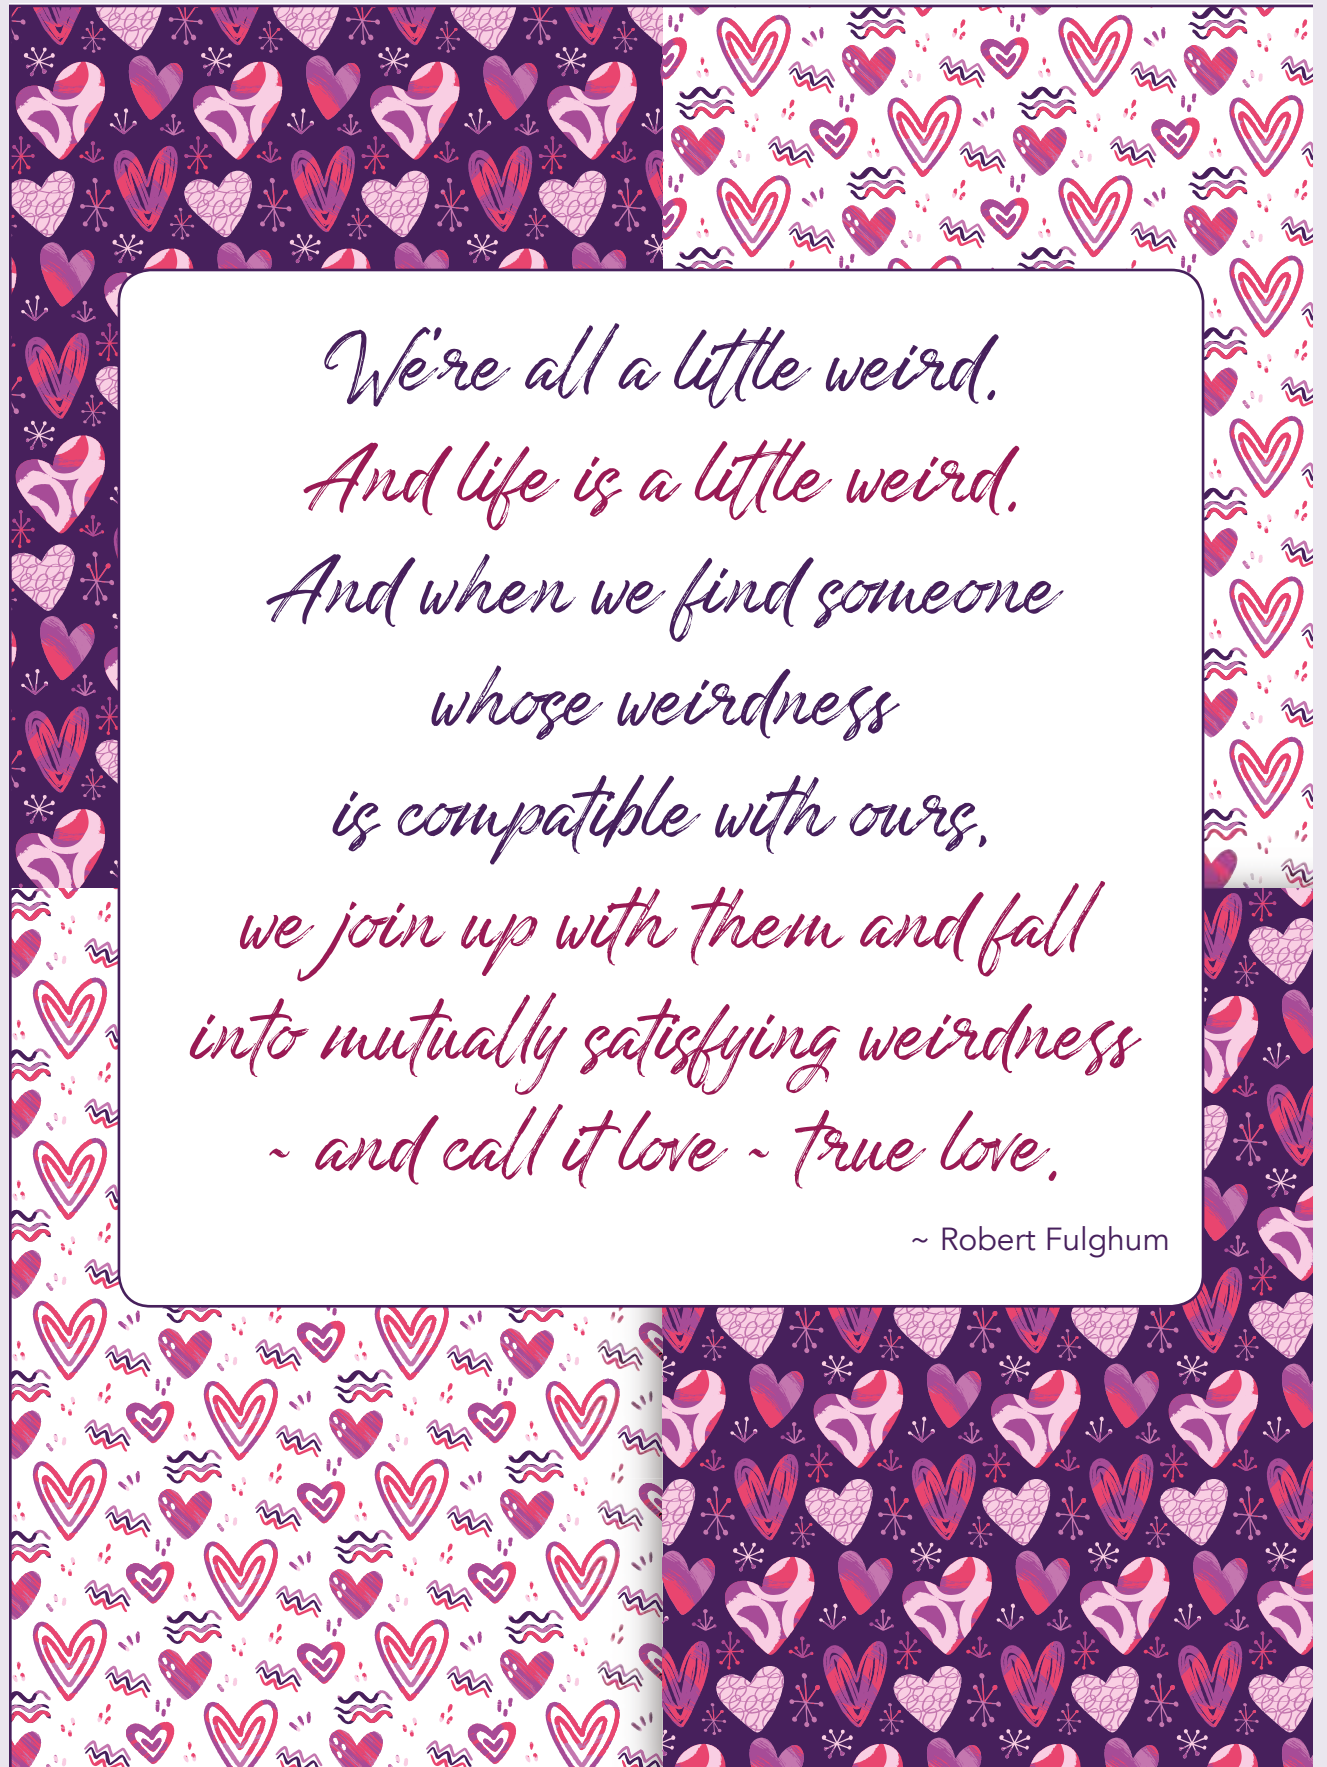 We're all a little weird.
And life is a little weird.
And when we find someone
whose weirdness
is compatible with ours,
we join up with them and fall
into mutually satisfying weirdness
~ and call it love ~ true love.
~ Robert Fulghum